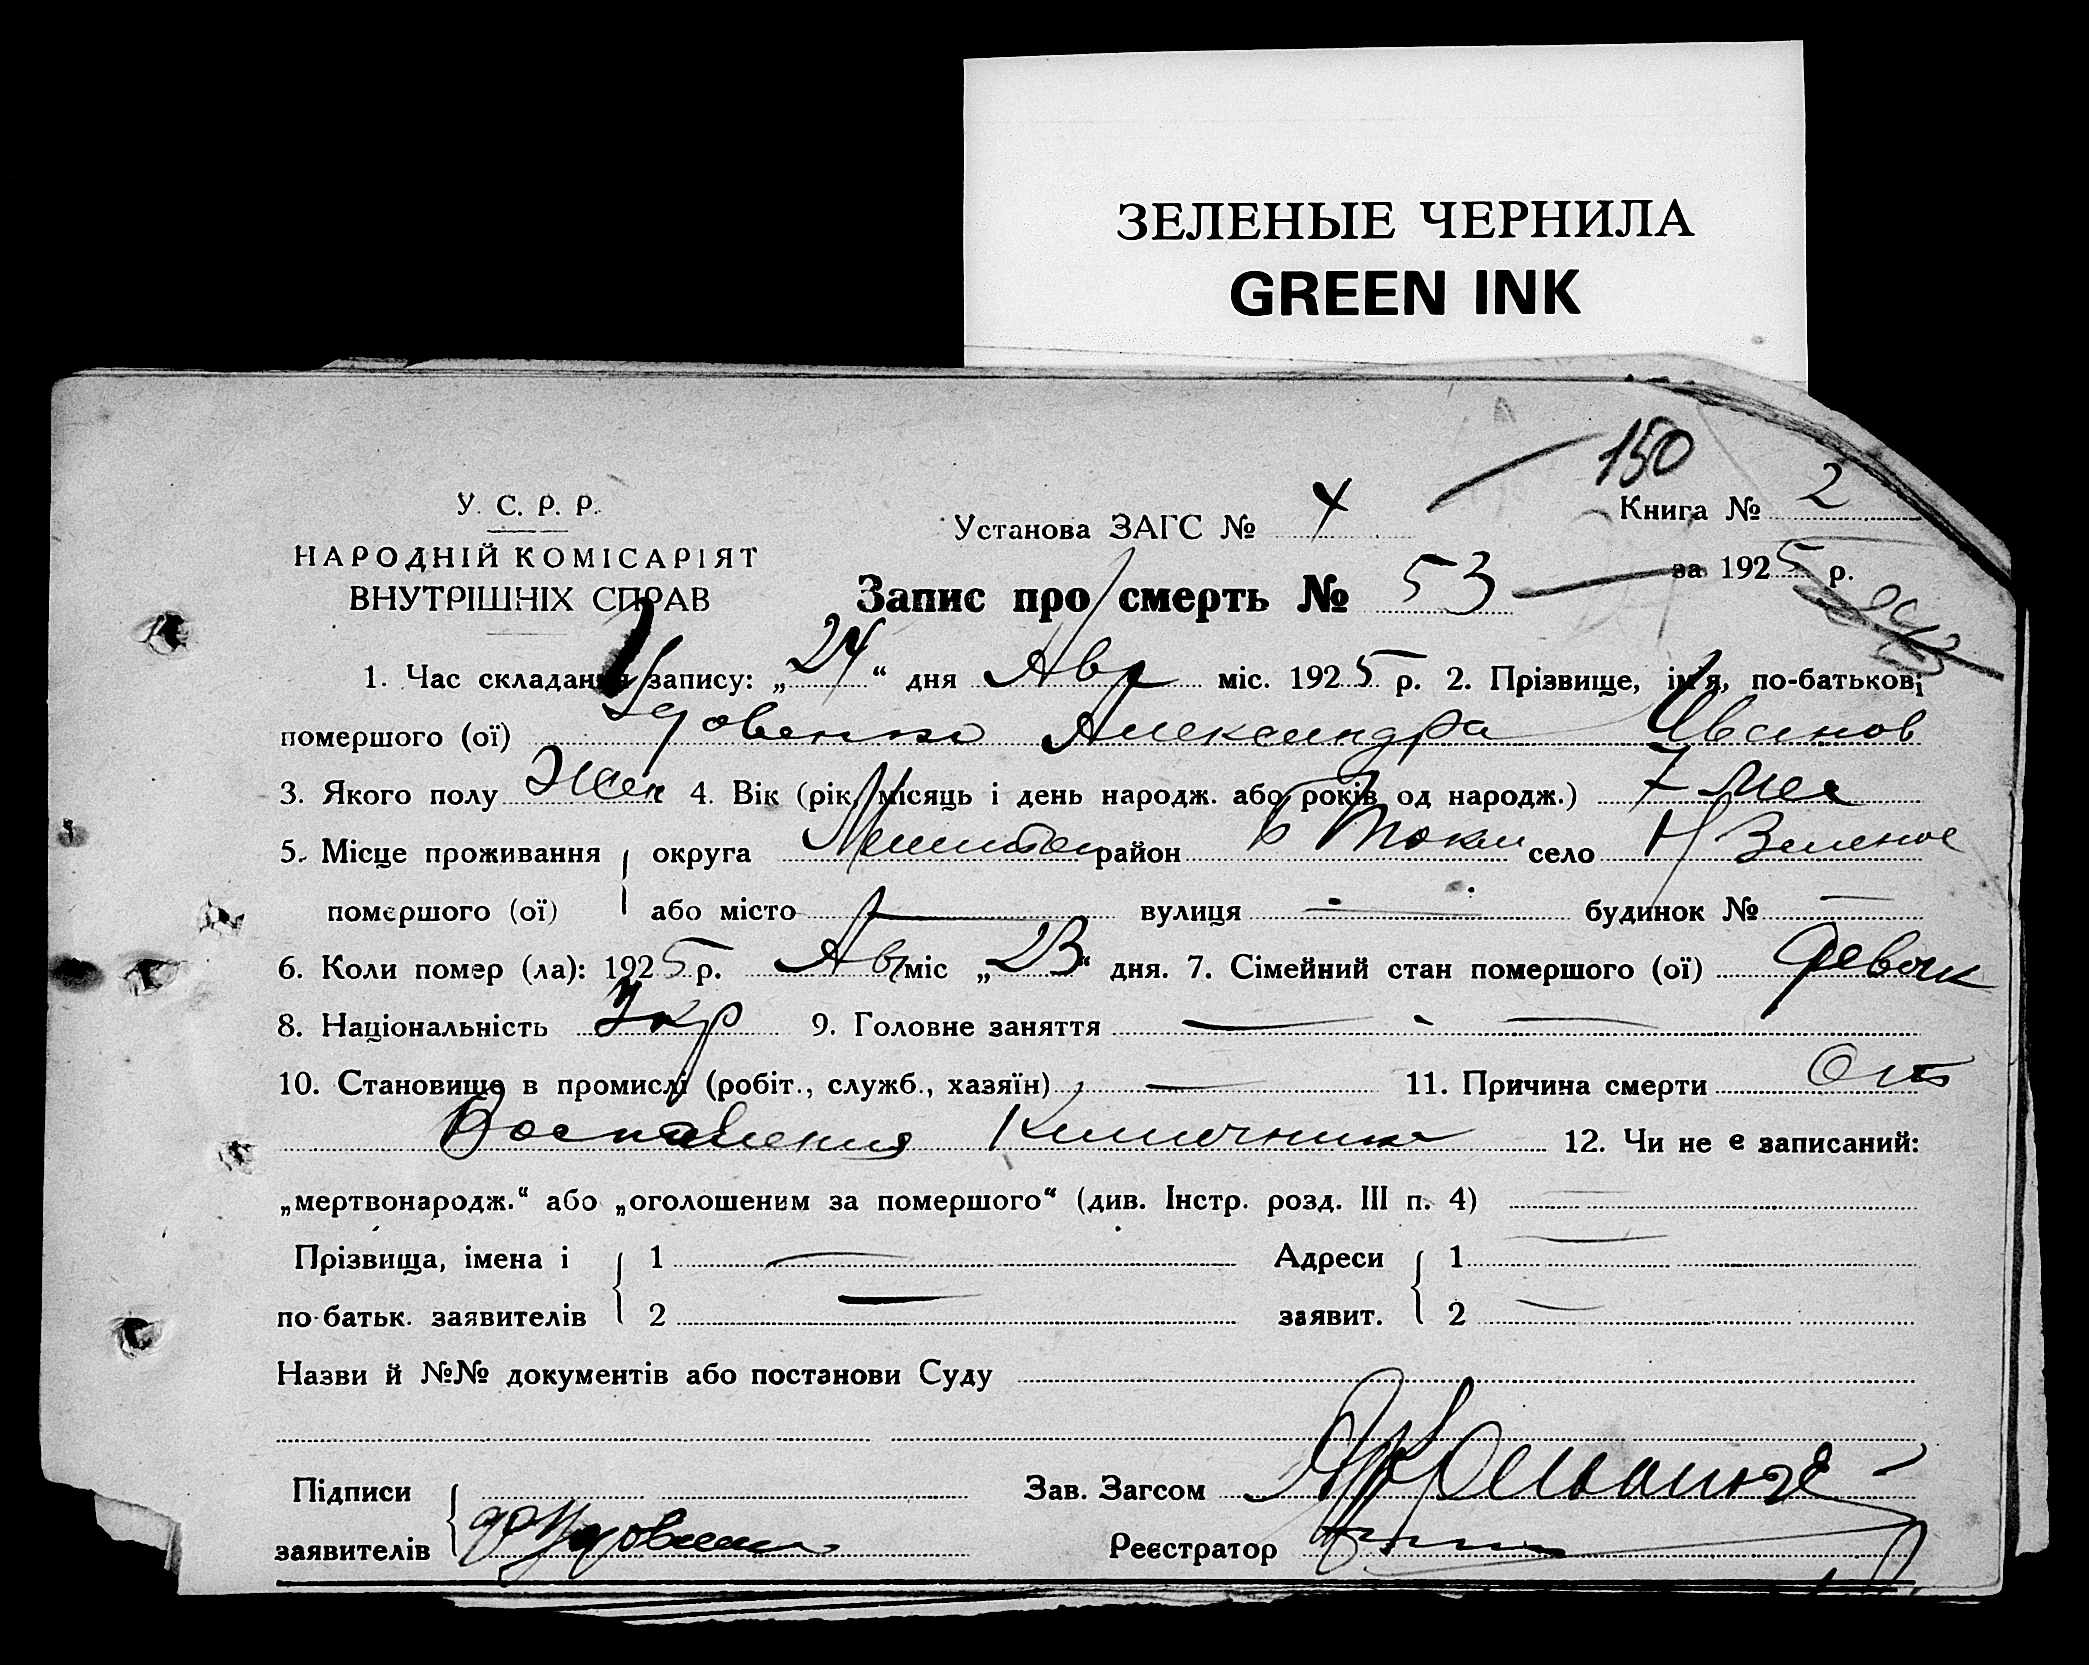 ЗЕЛЕНЫЕ ЧЕРНИЛА
GREEN INK
150
У. С. Р. Р.
НАРОДНІЙ КОМІСАРІЯТ
ВНУТРІШНІХ СПРАВ
Установа ЗАГС № 4
Книга № 2
за 1925 р.
Запис про смерть № 53
1. Час складання запису: „24“ дня Авг міс. 1925 р. 2. Прізвище, ім'я, по-батькові
помершого (ої) Удовенко Александра Иванов
3. Якого полу Жен 4. Вік (рік, місяць і день народж. або років од народж.) 7 мес
5. Місце проживання округа район Б Токм село Н Зеленое
помершого (ої) або місто — вулиця — будинок № —
6. Коли помер (ла): 1925 р. Авг міс „23“ дня. 7. Сімейний стан помершого (ої) девочк
8. Національність Укр 9. Головне заняття — - —
10. Становище в промислі (робіт., служб., хазяїн) — 11. Причина смерти От
Воспаления Кишечника 12. Чи не є записаний:
„мертвонародж.“ або „оголошеним за помершого“ (див. Інстр. розд. III п. 4) —
Прізвища, імена і 1 — Адреси 1 —
по-батьк. заявителів 2 — заявит. 2 —
Назви й №№ документів або постанови Суду
Підписи Зав. Загсом
заявителів Удовенко Реєстратор